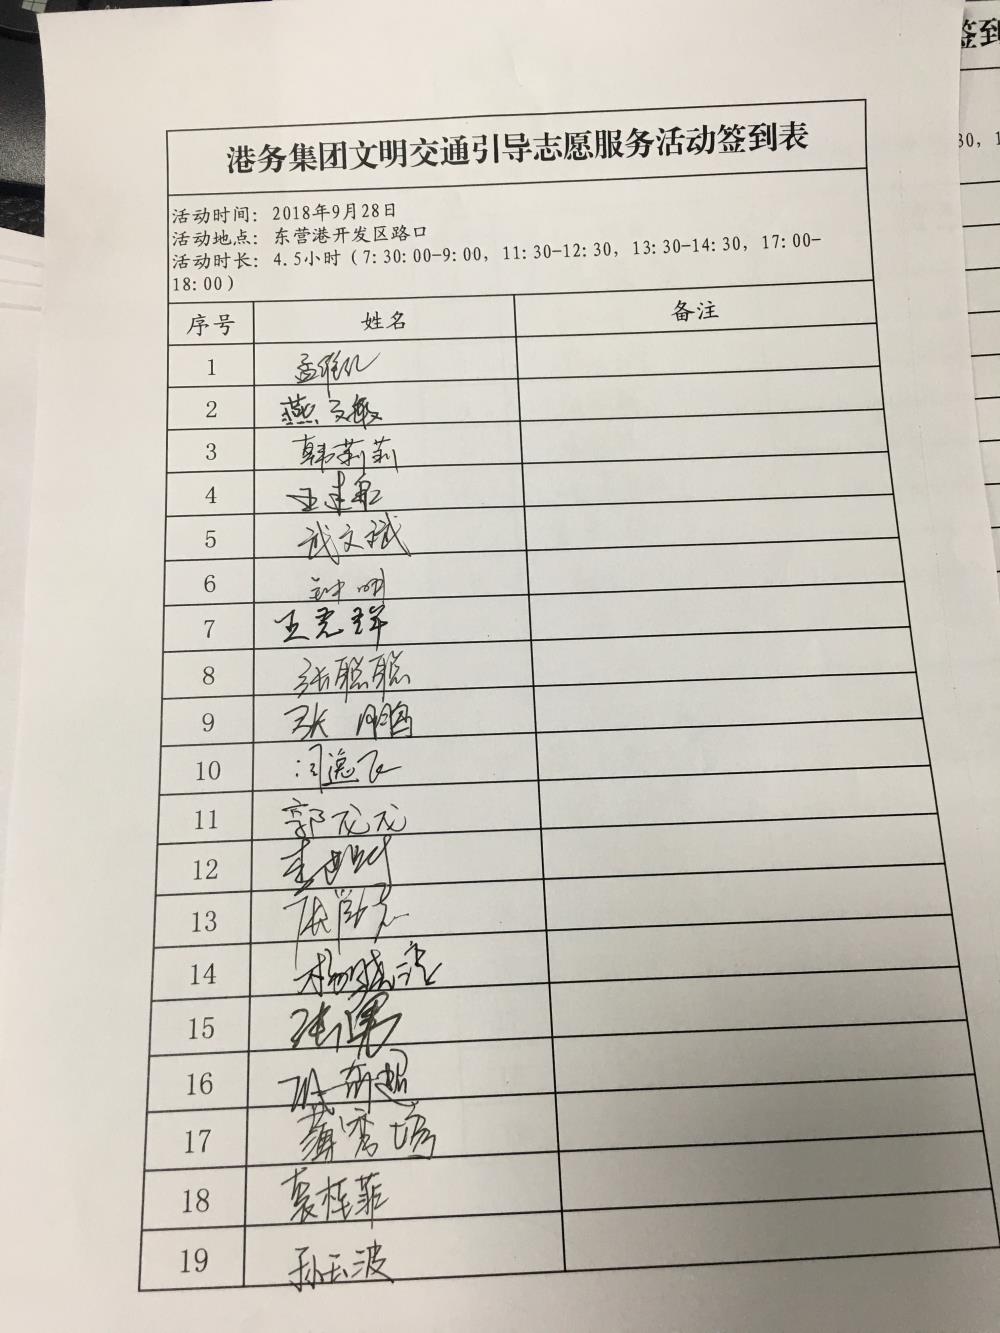 港务集团文明交通引导志愿服务活动签到表
活动时间：2018年9月28日
活动地点：东营港开发区路口
活动时长：4.5小时（7:30:00-9:00，11:30-12:30，13:30-14:30，17:00-
18:00）
序号 姓名 备注
1
2 燕文敏
3 韩莉莉
4
5 武文斌
6 钟明
7
8 张聪聪
9 张鹏
10 闫逸飞
11 郭龙龙
12
13
14 杨晓波
15 张军
16
17
18 袁桂菲
19 孙玉波
签到
30, 1